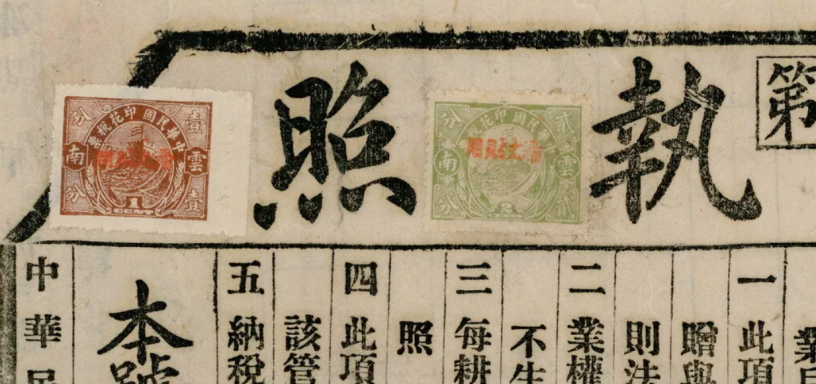 第
執照
中華民國印花稅票
雲南
貳分
貳分
2
中華民國印花稅票
雲南
壹分
壹分
1
CENT
業
一 此項
贈與
則法
二 業權
不生
三 每耕
照
四 此項
該管
五 納稅
本號
中華民